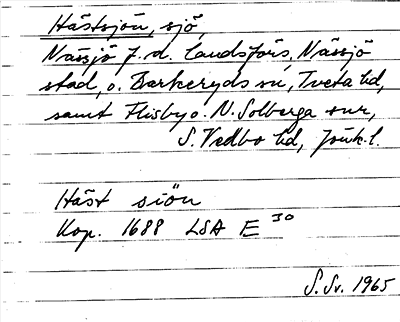 Hästsjön, sjö,
Nässjö f.d. landsförs., Nässjö
stad, o. Barkeryds sn, Tveta hd,
samt Flisby o. N. Solberga snr,
S. Vedbo hd, Jönk. l.
Häst siön
Kop. 1688 LSA E 30
S. Sv. 1965